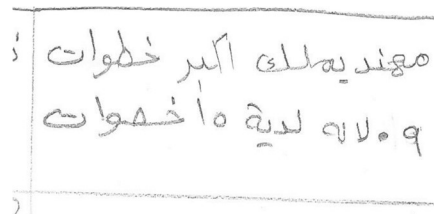 مهند يملك اكبر خطوات
و لانه لدية ١٥ خطوات